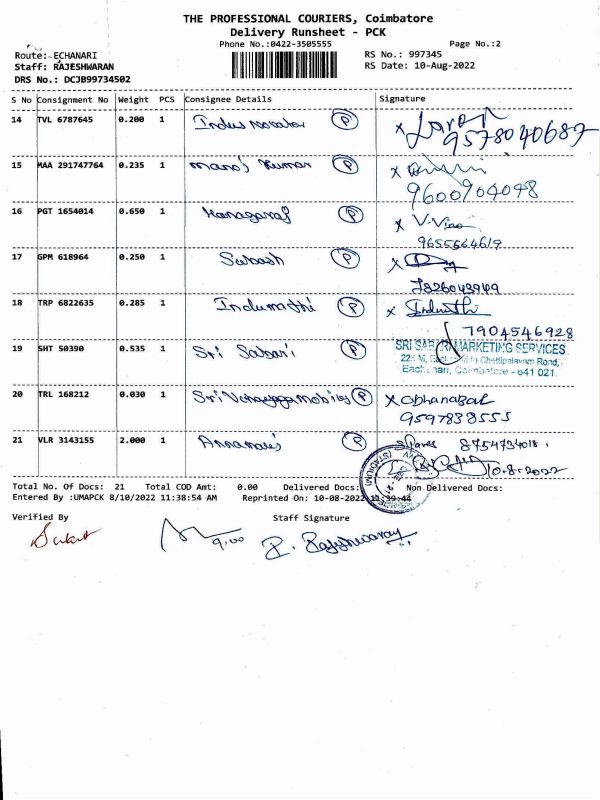 THE PROFESSIONAL COURIERS, Coimbatore
Delivery Runsheet - PCK
Phone No.:0422-3505555
Page No.:2
Route: ECHANARI
RS No.: 997345
Staff: RAJESHWARAN
RS Date: 10-Aug-2022
DRS No.: DCJB99734502
S No Consignment No Weight PCS Consignee Details Signature
14 TVL 6787645 0.200 1 Indus P
9578040687
15 MAA 291747764 0.235 1 Mano's Kumar P
9600904048
16 PGT 1654014 0.650 1 Kanagaraj P X V.Vino
9655564619
17 GPM 618964 0.250 1 Subash P X
7826043949
18 TRP 6822635 0.285 1 Indumathi P X Indumathi
7904546928
19 SHT 50390 0.535 1 Sri Sabari P SRI SABARI MARKETING SERVICES
Chettipalayam Road,
Eachanari, Coimbatore - 641 021.
20 TRL 168212 0.030 1 Sri Vinayaga Mobiles P X Dhanabal
9597838555
21 VLR 3143155 2.000 1 Annamalai P 8754734018.
10-8-2022
Total No. Of Docs: 21 Total COD Amt: 0.00 Delivered Docs: Non Delivered Docs:
Entered By :UMAPCK 8/10/2022 11:38:54 AM Reprinted On: 10-08-2022 11:39:44
Verified By Staff Signature
9.00 R. Rajeshwaran